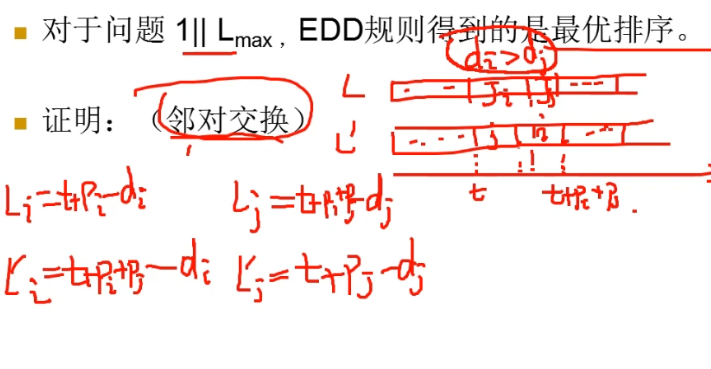 对于问题 1|| Lmax , EDD规则得到的是最优排序。
di>dj
L -- Ji Jj ---
证明：（邻对交换）
L' --- j i --
t t+Pi+Pj
Li=t+Pi-di Lj=t+Pi+Pj-dj
L'i=t+Pi+Pj-di L'j=t+Pj-dj